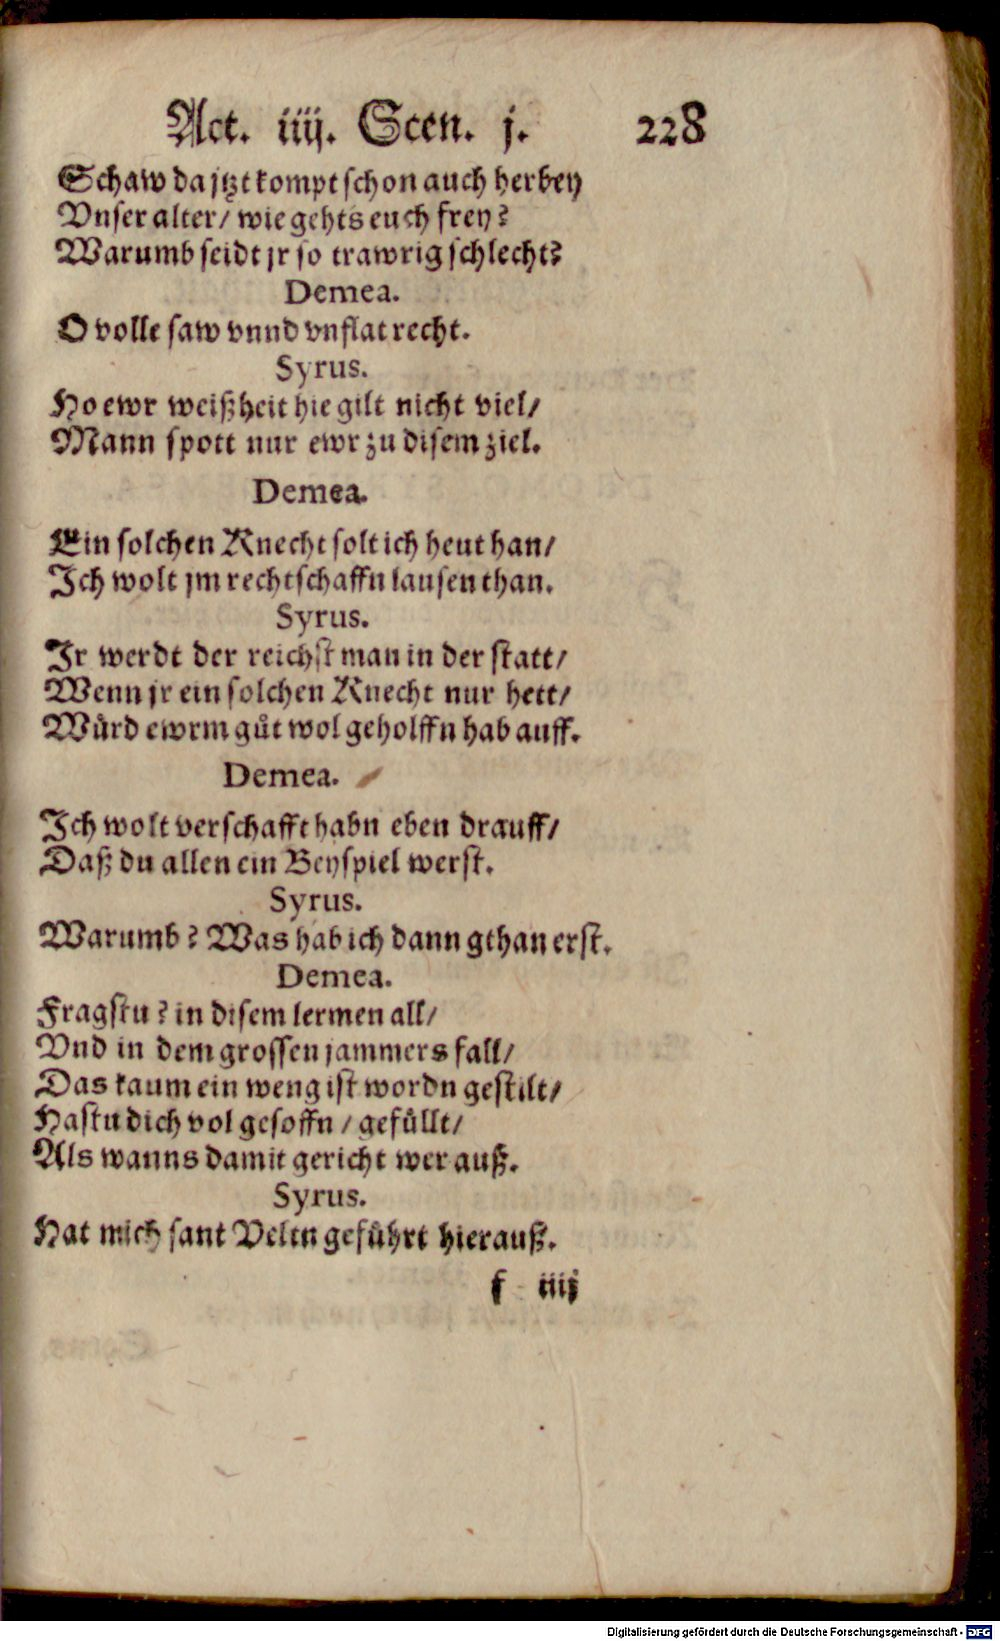 Act. iiij. Scen. j. 228
Schaw da jtzt kompt schon auch herbey
Vnser alter/ wie gehts euch frey?
Warumb seidt jr so trawrig schlecht?
Demea.
O volle saw vnnd vnflat recht.
Syrus.
Ho ewr weißheit hie gilt nicht viel/
Mann spott nur ewr zu disem ziel.
Demea.
Ein solchen Knecht solt ich heut han/
Ich wolt jm rechtschaffn lausen than.
Syrus.
Ir werdt der reichst man in der statt/
Wenn jr ein solchen Knecht nur hett/
Wuͤrd ewrm guͤt wol geholffn hab auff.
Demea.
Ich wolt verschafft habn eben drauff/
Daß du allen ein Beyspiel werst.
Syrus.
Warumb? Was hab ich dann gthan erst.
Demea.
Fragstu? in disem lermen all/
Vnd in dem grossen jammers fall/
Das kaum ein weng ist wordn gestilt/
Hastu dich vol gesoffn/ gefuͤllt/
Als wanns damit gericht wer auß.
Syrus.
Hat mich sant Veltn gefuͤhrt hierauß.
f iiij
Digitalisierung gefördert durch die Deutsche Forschungsgemeinschaft - DFG